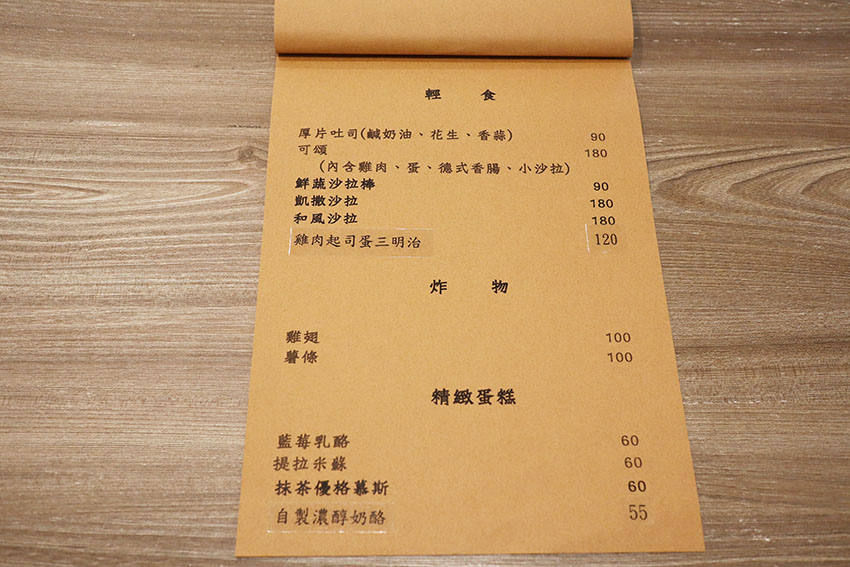 輕 食
厚片吐司(鹹奶油、花生、香蒜) 90
可頌 180
(內含雞肉、蛋、德式香腸、小沙拉)
鮮蔬沙拉棒 90
凱撒沙拉 180
和風沙拉 180
雞肉起司蛋三明治 120
炸 物
雞翅 100
薯條 100
精緻蛋糕
藍莓乳酪 60
提拉米蘇 60
抹茶優格慕斯 60
自製濃醇奶酪 55